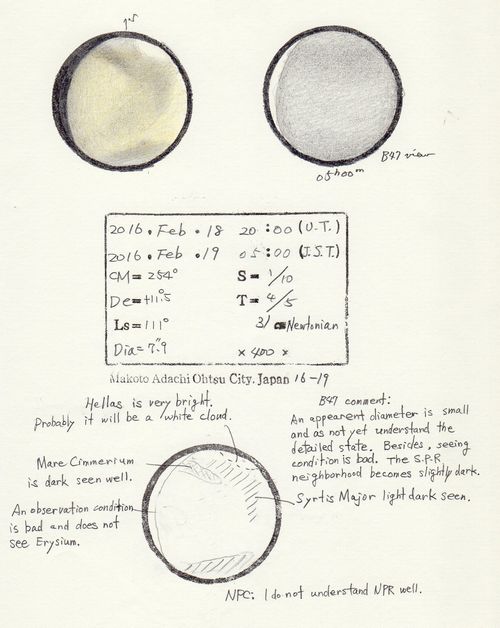 05h00m
B47 view
2016. Feb. 18 20:00 (U.T.)
2016. Feb. 19 05:00 (J.S.T.)
CM= 254° S= 1/10
De= +11.5° T= 4/5
Ls= 111° Newtonian
Dia= 7".9 × 400 ×
Makoto Adachi Ohtsu City, Japan 16-19
Hellas is very bright.
Probably it will be a white cloud.
Mare Cimmerium
is dark seen well.
An observation condition
is bad and does not
see Erysium.
B47 comment:
An appearent diameter is small
and as not yet understand the
detailed state. Besides, seeing
condition is bad. The S.P.R
neighborhood becomes slightly dark.
Syrtis Major light dark seen.
NPC: I do not understand NPR well.